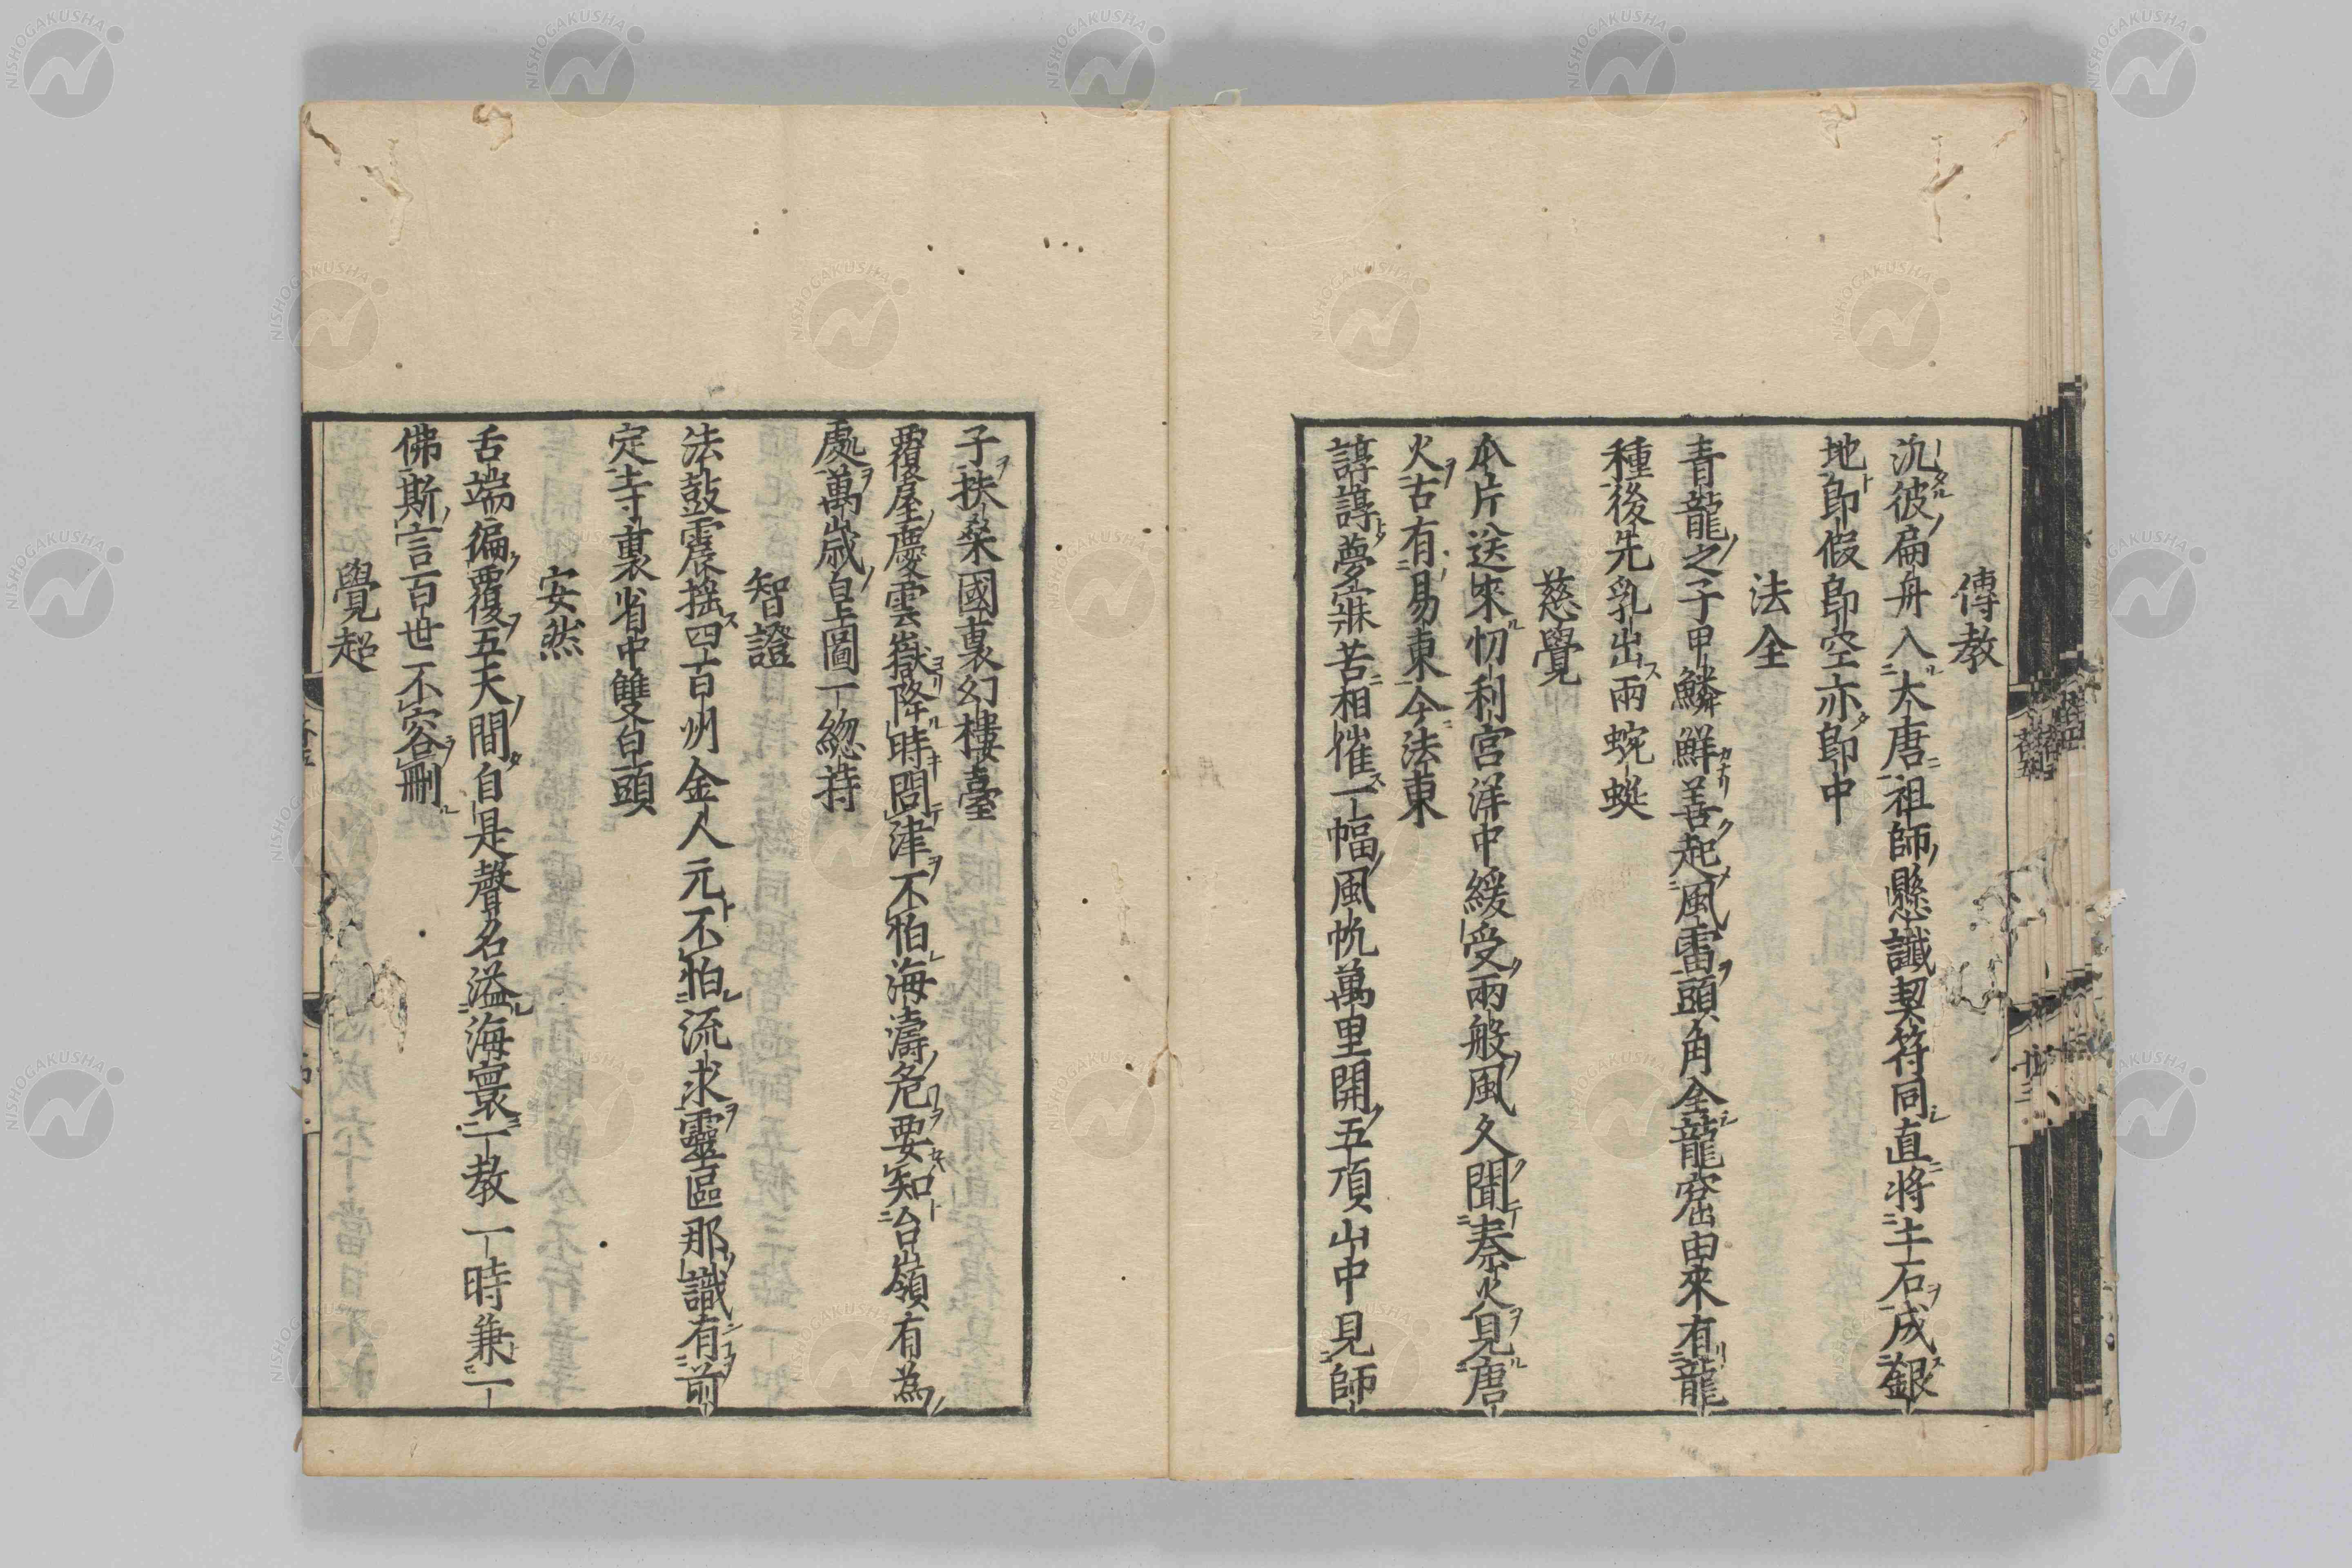 傳教
汎彼扁舟入大唐祖師懸讖契符同直將土石成銀
地卽假卽空亦卽中
法全
青龍之子甲鱗鮮善起風雷頭角全龍窟由來有龍
種後先乳出兩蜿蜒
慈覺
本片送來忉利宮洋中緩受兩般風久聞秦火見唐
火古有易東今法東
諄諄夢寐苦相催一幅風帆萬里開五頂山中見師
子扶桑國裏幻樓臺
覆屋慶雲嶽降時問津不怕海濤危要知台嶺有為
處萬歲皇圖一緫持
智證
法鼓震揺四百州金人元不怕流求靈區那識有前
定寺裏省中雙白頭
安然
舌端徧覆五天間自是聲名溢海寰一教一時兼一
佛斯言百世不容刪
覺超
NISHOGAKUSHA